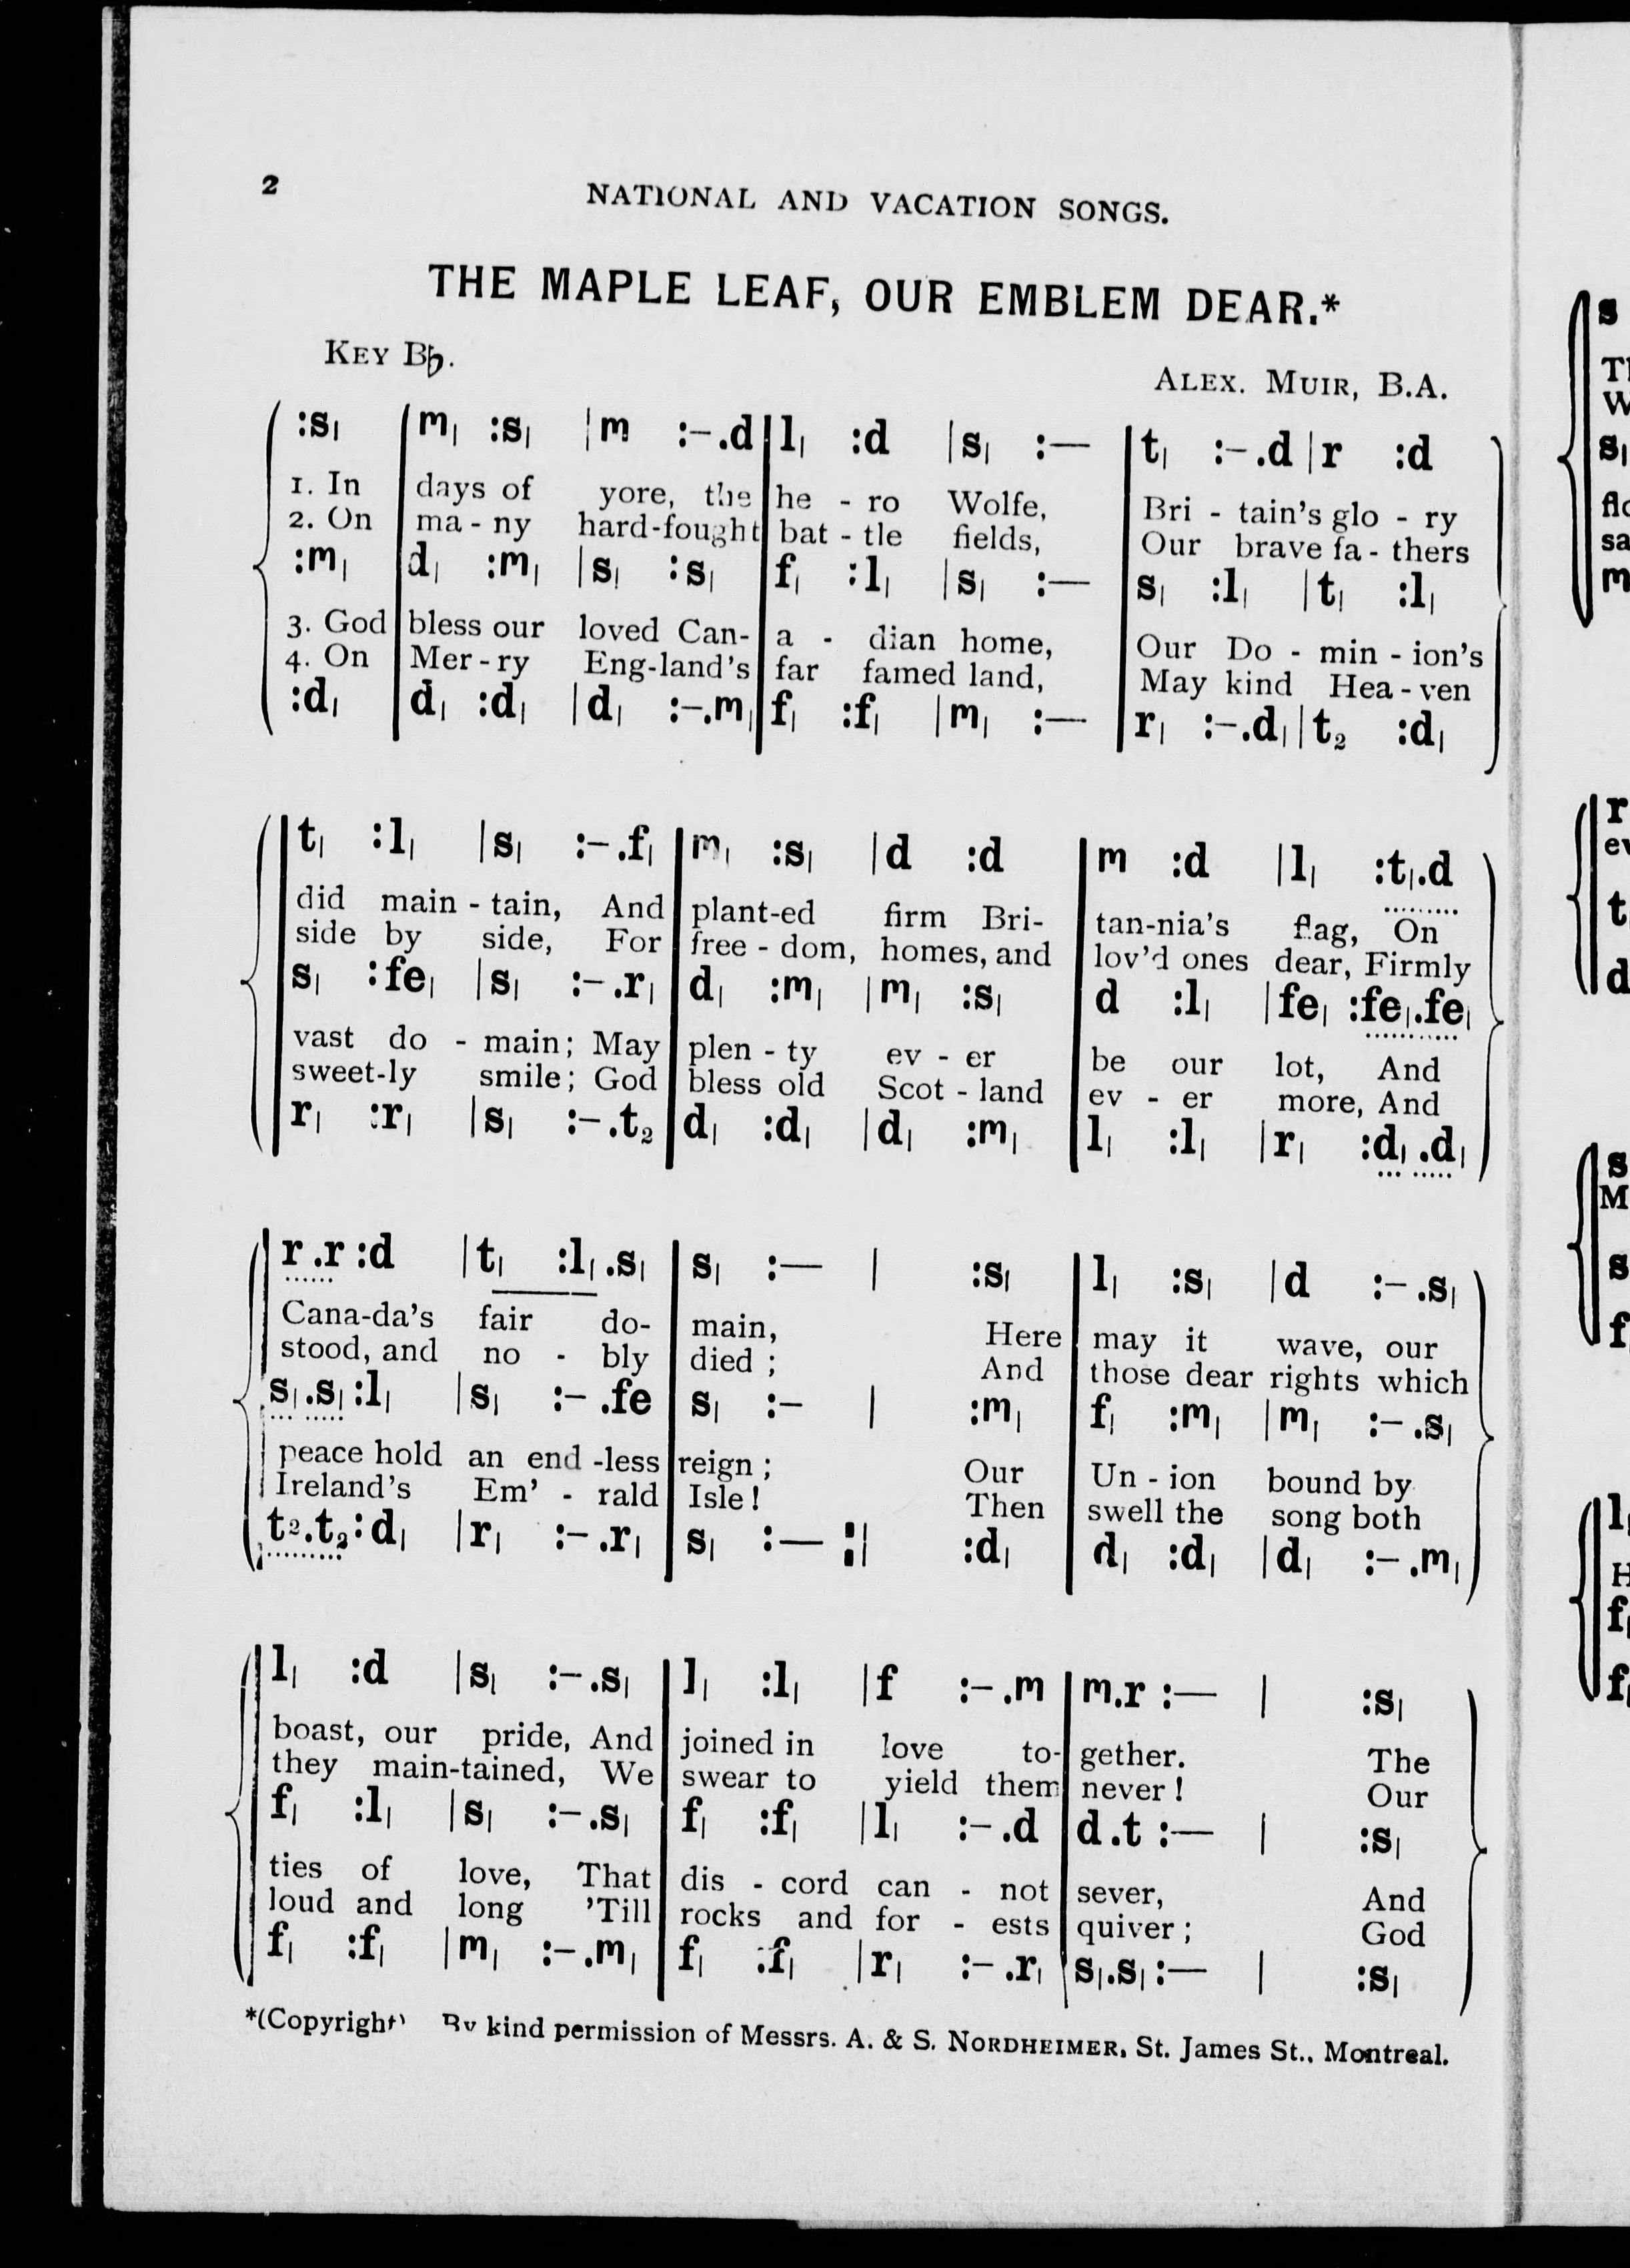 2
NATIONAL AND VACATION SONGS.
THE MAPLE LEAF, OUR EMBLEM DEAR.*
KEY B♭.
ALEX. MUIR, B.A.
:s| |m| :s| |m :-.d|l| :d |s| :— |t| :-.d|r :d
1. In days of yore, the he - ro Wolfe, Bri - tain's glo - ry
2. On ma - ny hard-fought bat - tle fields, Our brave fa - thers
:m| |d| :m| |s| :s| |f| :l| |s| :— |s| :l| |t| :l|
3. God bless our loved Can- a - dian home, Our Do - min - ion's
4. On Mer - ry Eng-land's far famed land, May kind Hea - ven
:d| |d| :d| |d| :-.m||f| :f| |m| :— |r| :-.d||t₂ :d|
|t| :l| |s| :-.f||m| :s| |d :d |m :d |l| :t|.d
did main - tain, And plant-ed firm Bri- tan-nia's flag, On
side by side, For free - dom, homes, and lov'd ones dear, Firmly
s| :fe| |s| :-.r||d| :m| |m| :s| d :l| |fe| :fe|.fe|
vast do - main; May plen - ty ev - er be our lot, And
sweet-ly smile; God bless old Scot - land ev - er more, And
r| :r| |s| :-.t₂|d| :d| |d| :m| |l| :l| |r| :d|.d|
|r .r :d |t| :l|.s| |s| :— | :s| |l| :s| |d :-.s|
Cana-da's fair do- main, Here may it wave, our
stood, and no - bly died; And those dear rights which
s|.s| :l| |s| :- .fe |s| :- | :m| |f| :m| |m| :-.s|
peace hold an end -less reign; Our Un - ion bound by
Ireland's Em' - rald Isle! Then swell the song both
t₂.t₂ :d| |r| :-.r| |s| :— :| :d| |d| :d| |d| :-.m|
|l| :d |s| :-.s| |l| :l| |f :-.m |m.r :— | :s|
boast, our pride, And joined in love to- gether. The
they main-tained, We swear to yield them never! Our
f| :l| |s| :-.s| |f| :f| |l| :-.d |d.t :— | :s|
ties of love, That dis - cord can - not sever, And
loud and long 'Till rocks and for - ests quiver; God
f| :f| |m| :-.m| |f| :f| |r| :-.r| |s|.s| :— | :s|
*(Copyright) By kind permission of Messrs. A. & S. NORDHEIMER, St. James St., Montreal.